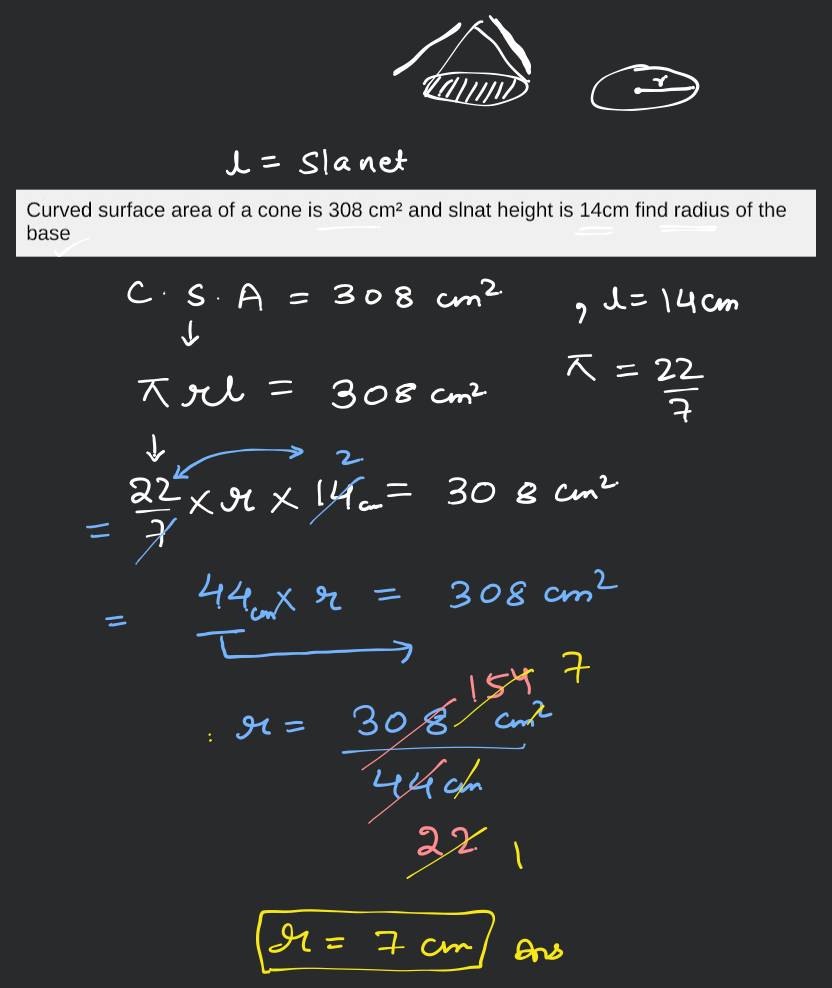 r
l = slanet
Curved surface area of a cone is 308 cm² and slnat height is 14cm find radius of the
base
C. S. A = 308 cm² , l = 14 cm
π r l = 308 cm² π = 22/7
2
22/7 × r × 14 cm = 308 cm²
= 
= 44 cm × r = 308 cm²
154 7
: r = 308 cm² / 44 cm
22 1
r = 7 cm Ans